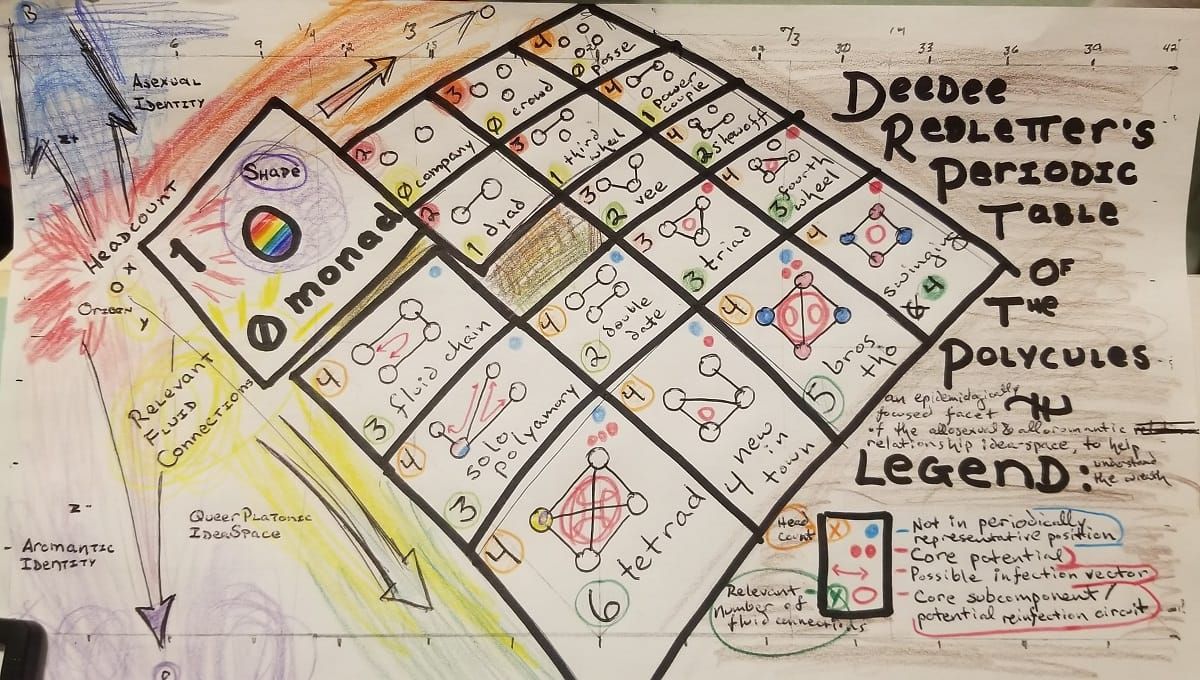 B
6
9
1/4
12
13
15
7/3
30
14
33
36
39
42
Asexual
Identity
Z+
Headcount
X
O
Origin
y
Relevant
Fluid
Connections
Z-
Aromantic
Identity
QueerPlatonic
IdeaSpace
1
Shape
0 monad
2
0 company
3
0 crowd
4
0 posse
2
1 dyad
3
1 third
wheel
4
1 power
couple
3
2 vee
4
2 showoff
3
3 triad
4
3 fourth
wheel
4
swinging
4
4
3 fluid chain
4
3 solo
polyamory
4
2 double
date
4
4 new
in
town
4
5 bros
tho
4
6 tetrad
DeeDee
Redletter's
Periodic
Table
of
The
Polycules
an epidemiologically
focused facet
of the allosexual & alloromantic
relationship idea-space, to help
understand
the wreath
Legend:
Head
Count
X
Not in periodically
representative position
Core potential
Possible infection vector
Core subcomponent/
potential reinfection circuit
Relevant
Number of
fluid connections
X